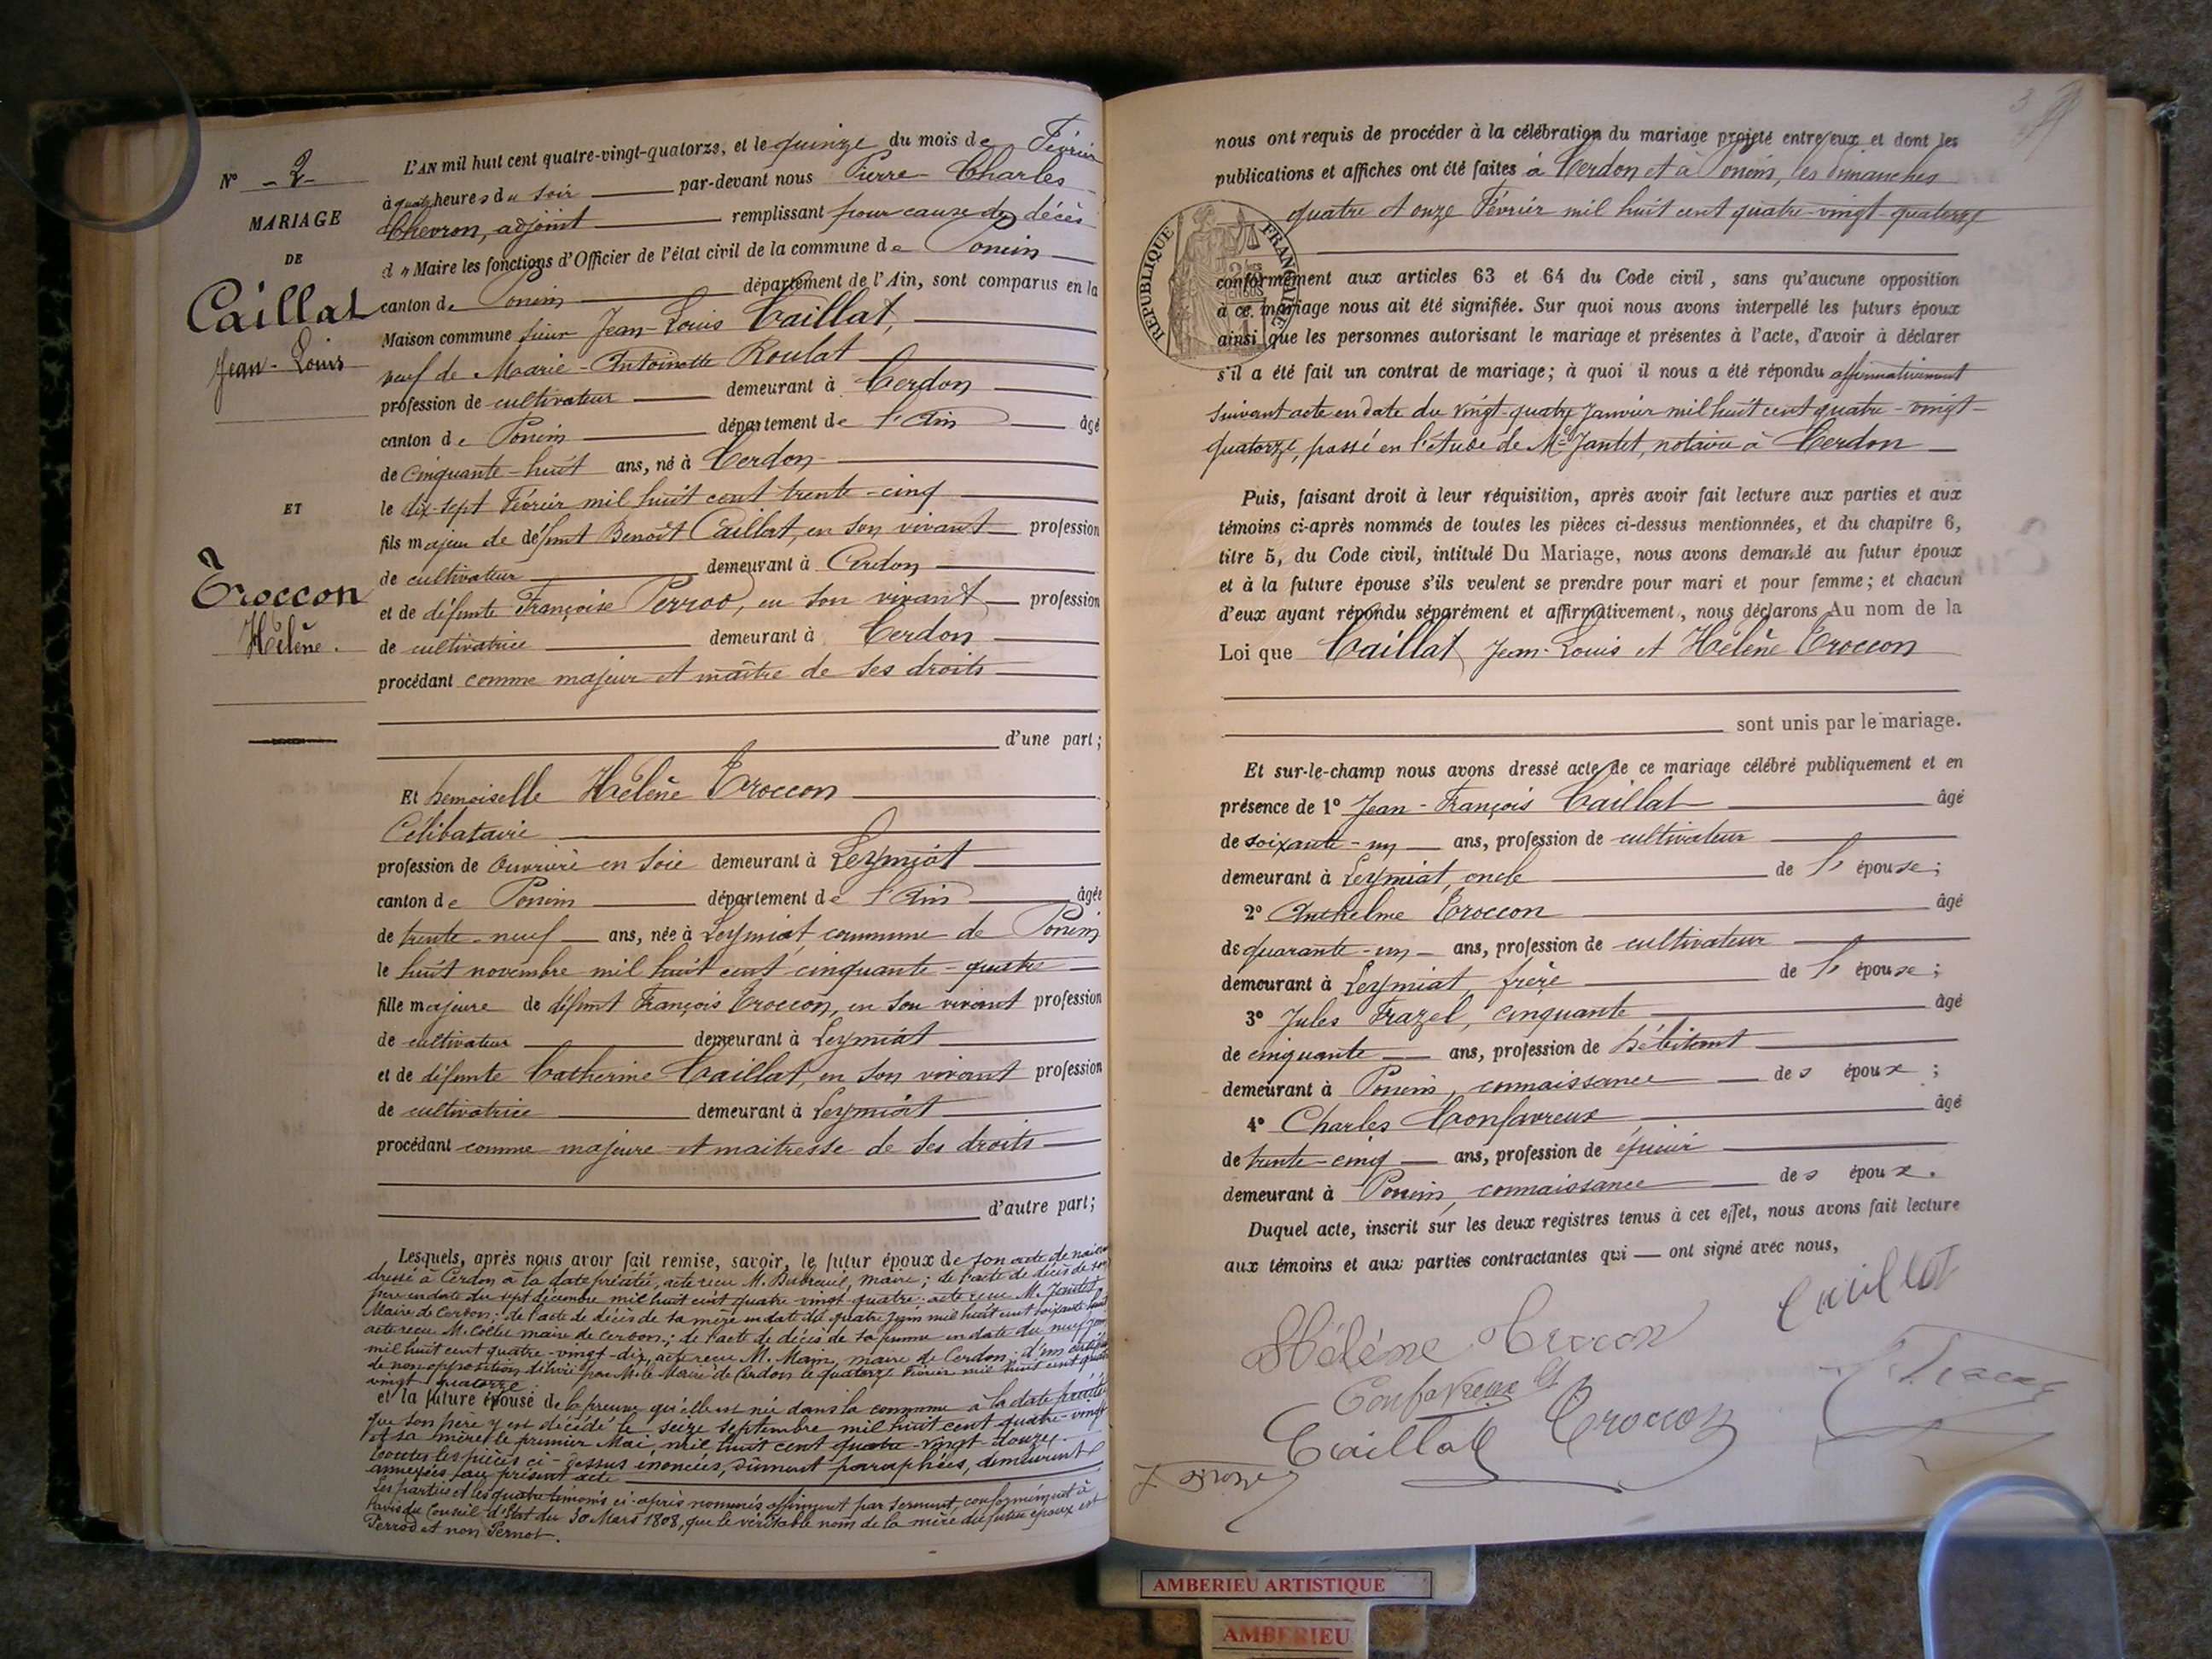 N° - 2 -
MARIAGE
DE
Caillat
Jean-Louis
ET
Troccon
Hélène.
L'AN mil huit cent quatre-vingt-quatorze, et le quinze du mois de Février
à quatre heures du soir par-devant nous Pierre-Charles
Chevron, adjoint remplissant pour cause de décès
du Maire les fonctions d'Officier de l'état civil de la commune de Poncin
canton de Poncin département de l'Ain, sont comparus en la
Maison commune sieur Jean-Louis Caillat,
veuf de Marie-Antoinette Roulat
profession de cultivateur demeurant à Cerdon
canton de Poncin département de l'Ain âgé
de cinquante-huit ans, né à Cerdon
le dix-sept Février mil huit cent trente-cinq
fils majeur de défunt Benoît Caillat, en son vivant profession
de cultivateur demeurant à Cerdon
et de défunte Françoise Perrod, en son vivant profession
de cultivatrice demeurant à Cerdon
procédant comme majeur et maître de ses droits
d'une part;
Et Demoiselle Hélène Troccon
Célibataire
profession de Ouvrière en soie demeurant à Leymiat
canton de Poncin département de l'Ain âgée
de trente-neuf ans, née à Leymiat commune de Poncin
le huit novembre mil huit cent cinquante-quatre
fille majeure de défunt François Troccon, en son vivant profession
de cultivateur demeurant à Leymiat
et de défunte Catherine Caillat, en son vivant profession
de cultivatrice demeurant à Leymiat
procédant comme majeure et maitresse de ses droits
d'autre part;
Lesquels, après nous avoir fait remise, savoir, le futur époux de son acte de
dressé à Cerdon à la date précitée, acte reçu M. maire; de l'acte de décès de son
père en date du sept décembre mil huit cent quatre vingt quatre acte reçu M. Jantet
Maire de Cerdon; de l'acte de décès de sa mère en date du quatre Juin mil huit cent soixante
acte reçu M. maire de Cerdon; de l'acte de décès de sa femme en date du neuf
mil huit cent quatre-vingt-dix, acte reçu M. maire de Cerdon; d'un certificat
de non opposition délivré par M. le Maire de Cerdon le quatorze Février mil huit cent quatre
vingt quatorze
et la future épouse de la preuve qu'elle est née dans la commune à la date précitée
que son père y est décédé le seize septembre mil huit cent quatre-vingt
et sa mère le premier Mai mil huit cent quatre-vingt-douze.
Toutes les pièces ci-dessus énoncées, dûment paraphées, demeurent
annexées au présent acte
Les parties et les quatre témoins ci-après nommés affirment par serment, conformément à
l'avis du Conseil d'Etat du 30 Mars 1808, que le véritable nom de la mère du futur époux est
Perrod et non Pernot.
3
nous ont requis de procéder à la célébration du mariage projeté entre eux et dont les
publications et affiches ont été faites à Cerdon et à Poncin, les Dimanches
quatre et onze Février mil huit cent quatre-vingt-quatorze
RÉPUBLIQUE FRANÇAISE
conformément aux articles 63 et 64 du Code civil, sans qu'aucune opposition
à ce mariage nous ait été signifiée. Sur quoi nous avons interpellé les futurs époux
ainsi que les personnes autorisant le mariage et présentes à l'acte, d'avoir à déclarer
s'il a été fait un contrat de mariage; à quoi il nous a été répondu affirmativement
suivant acte en date du vingt-quatre Janvier mil huit cent quatre-vingt-
quatorze, passé en l'étude de Me Jantet, notaire à Cerdon
Puis, faisant droit à leur réquisition, après avoir fait lecture aux parties et aux
témoins ci-après nommés de toutes les pièces ci-dessus mentionnées, et du chapitre 6,
titre 5, du Code civil, intitulé Du Mariage, nous avons demandé au futur époux
et à la future épouse s'ils veulent se prendre pour mari et pour femme; et chacun
d'eux ayant répondu séparément et affirmativement, nous déclarons Au nom de la
Loi que Caillat Jean-Louis et Hélène Troccon
sont unis par le mariage.
Et sur-le-champ nous avons dressé acte de ce mariage célébré publiquement et en
présence de 1° Jean-François Caillat âgé
de soixante-un ans, profession de cultivateur
demeurant à Leymiat, oncle de l'épouse;
2° Anthelme Troccon âgé
de quarante-un ans, profession de cultivateur
demeurant à Leymiat, frère de l'épouse;
3° Jules Frazel, cinquante âgé
de cinquante ans, profession de débitant
demeurant à Poncin, connaissance des époux;
4° Charles Confavreux, âgé
de trente-cinq ans, profession de épicier
demeurant à Poncin, connaissance des époux.
Duquel acte, inscrit sur les deux registres tenus à cet effet, nous avons fait lecture
aux témoins et aux parties contractantes qui ont signé avec nous,
Caillat
Hélène Troccon
Confavreux
Caillat Troccon
AMBERIEU ARTISTIQUE
AMBERIEU